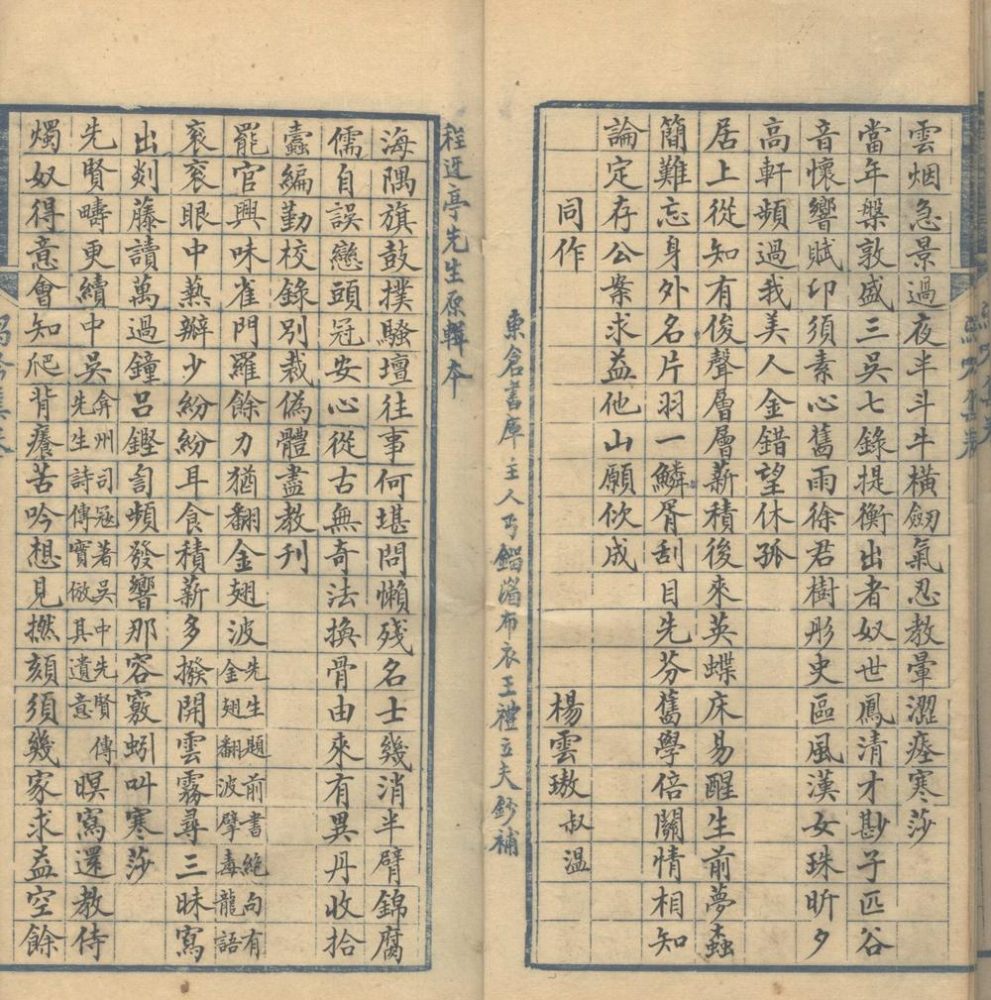 雲烟急景過夜半斗牛橫劒氣忍教暈澀瘞寒莎
當年槃敦盛三吳七錄提衡出者奴世鳳清才尠子匹谷
音懷響賦卬須素心舊雨徐君樹彤史區風漢女珠昕夕
高軒頻過我美人金錯望休孤
居上從知有俊聲層層薪積後來英蝶床易醒生前夢蟲
簡難忘身外名片羽一鱗胥刮目先芬舊學倍關情相知
論定存公案求益他山願佽成
同作
楊雲璈叔溫
東倉書庫主人丐鍿湽布衣王禮立夫鈔補
程迓亭先生原輯本
海隅旗鼓撲騷壇往事何堪問懶殘名士幾消半臂錦腐
儒自誤戀頭冠安心從古無奇法換骨由來有異丹收拾
蠹編勤校錄別裁偽體盡教刊
罷官興味雀門羅餘力猶翻金翅波先生題前書絕句有金翅翻波擘毒龍語
衮衮眼中爇瓣少紛紛耳食積薪多撥開雲霧尋三昧寫
出剡藤讀萬過鐘呂鏗訇頻發響那容竅蚓叫寒莎
先賢疇更續中吳弇州司冦著吳中先賢傳先生詩傳實倣其遺意暝寫還教侍
燭奴得意會知爬背癢苦吟想見撚頦須幾家求益空餘